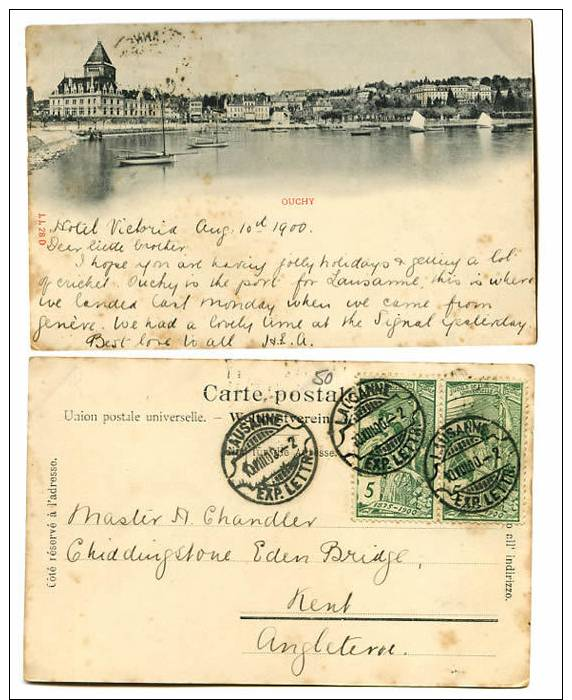 OUCHY
1128 D
Hotel Victoria Aug. 10th 1900.
Dear little brother
I hope you are having jolly holidays & getting a lot
of cricket. Ouchy is the port for Lausanne, this is where
we landed last monday when we came from
genève. We had a lovely time at the Signal yesterday.
Best love to all H.E.A.
50
Carte postal
Union postale universelle. –
Côté réservé à l'adresse.
LAUSANNE
10.VIII.00.–2
EXP. LETTR.
LAUSANNE
10.VIII.00.–2
EXP. LETTR.
LAUSANNE
10.VIII.00.–2
EXP. LETTR.
5
1875–1900
all' indirizzo.
Master A. Chandler
Chiddingstone Eden Bridge,
Kent
Angleterre.